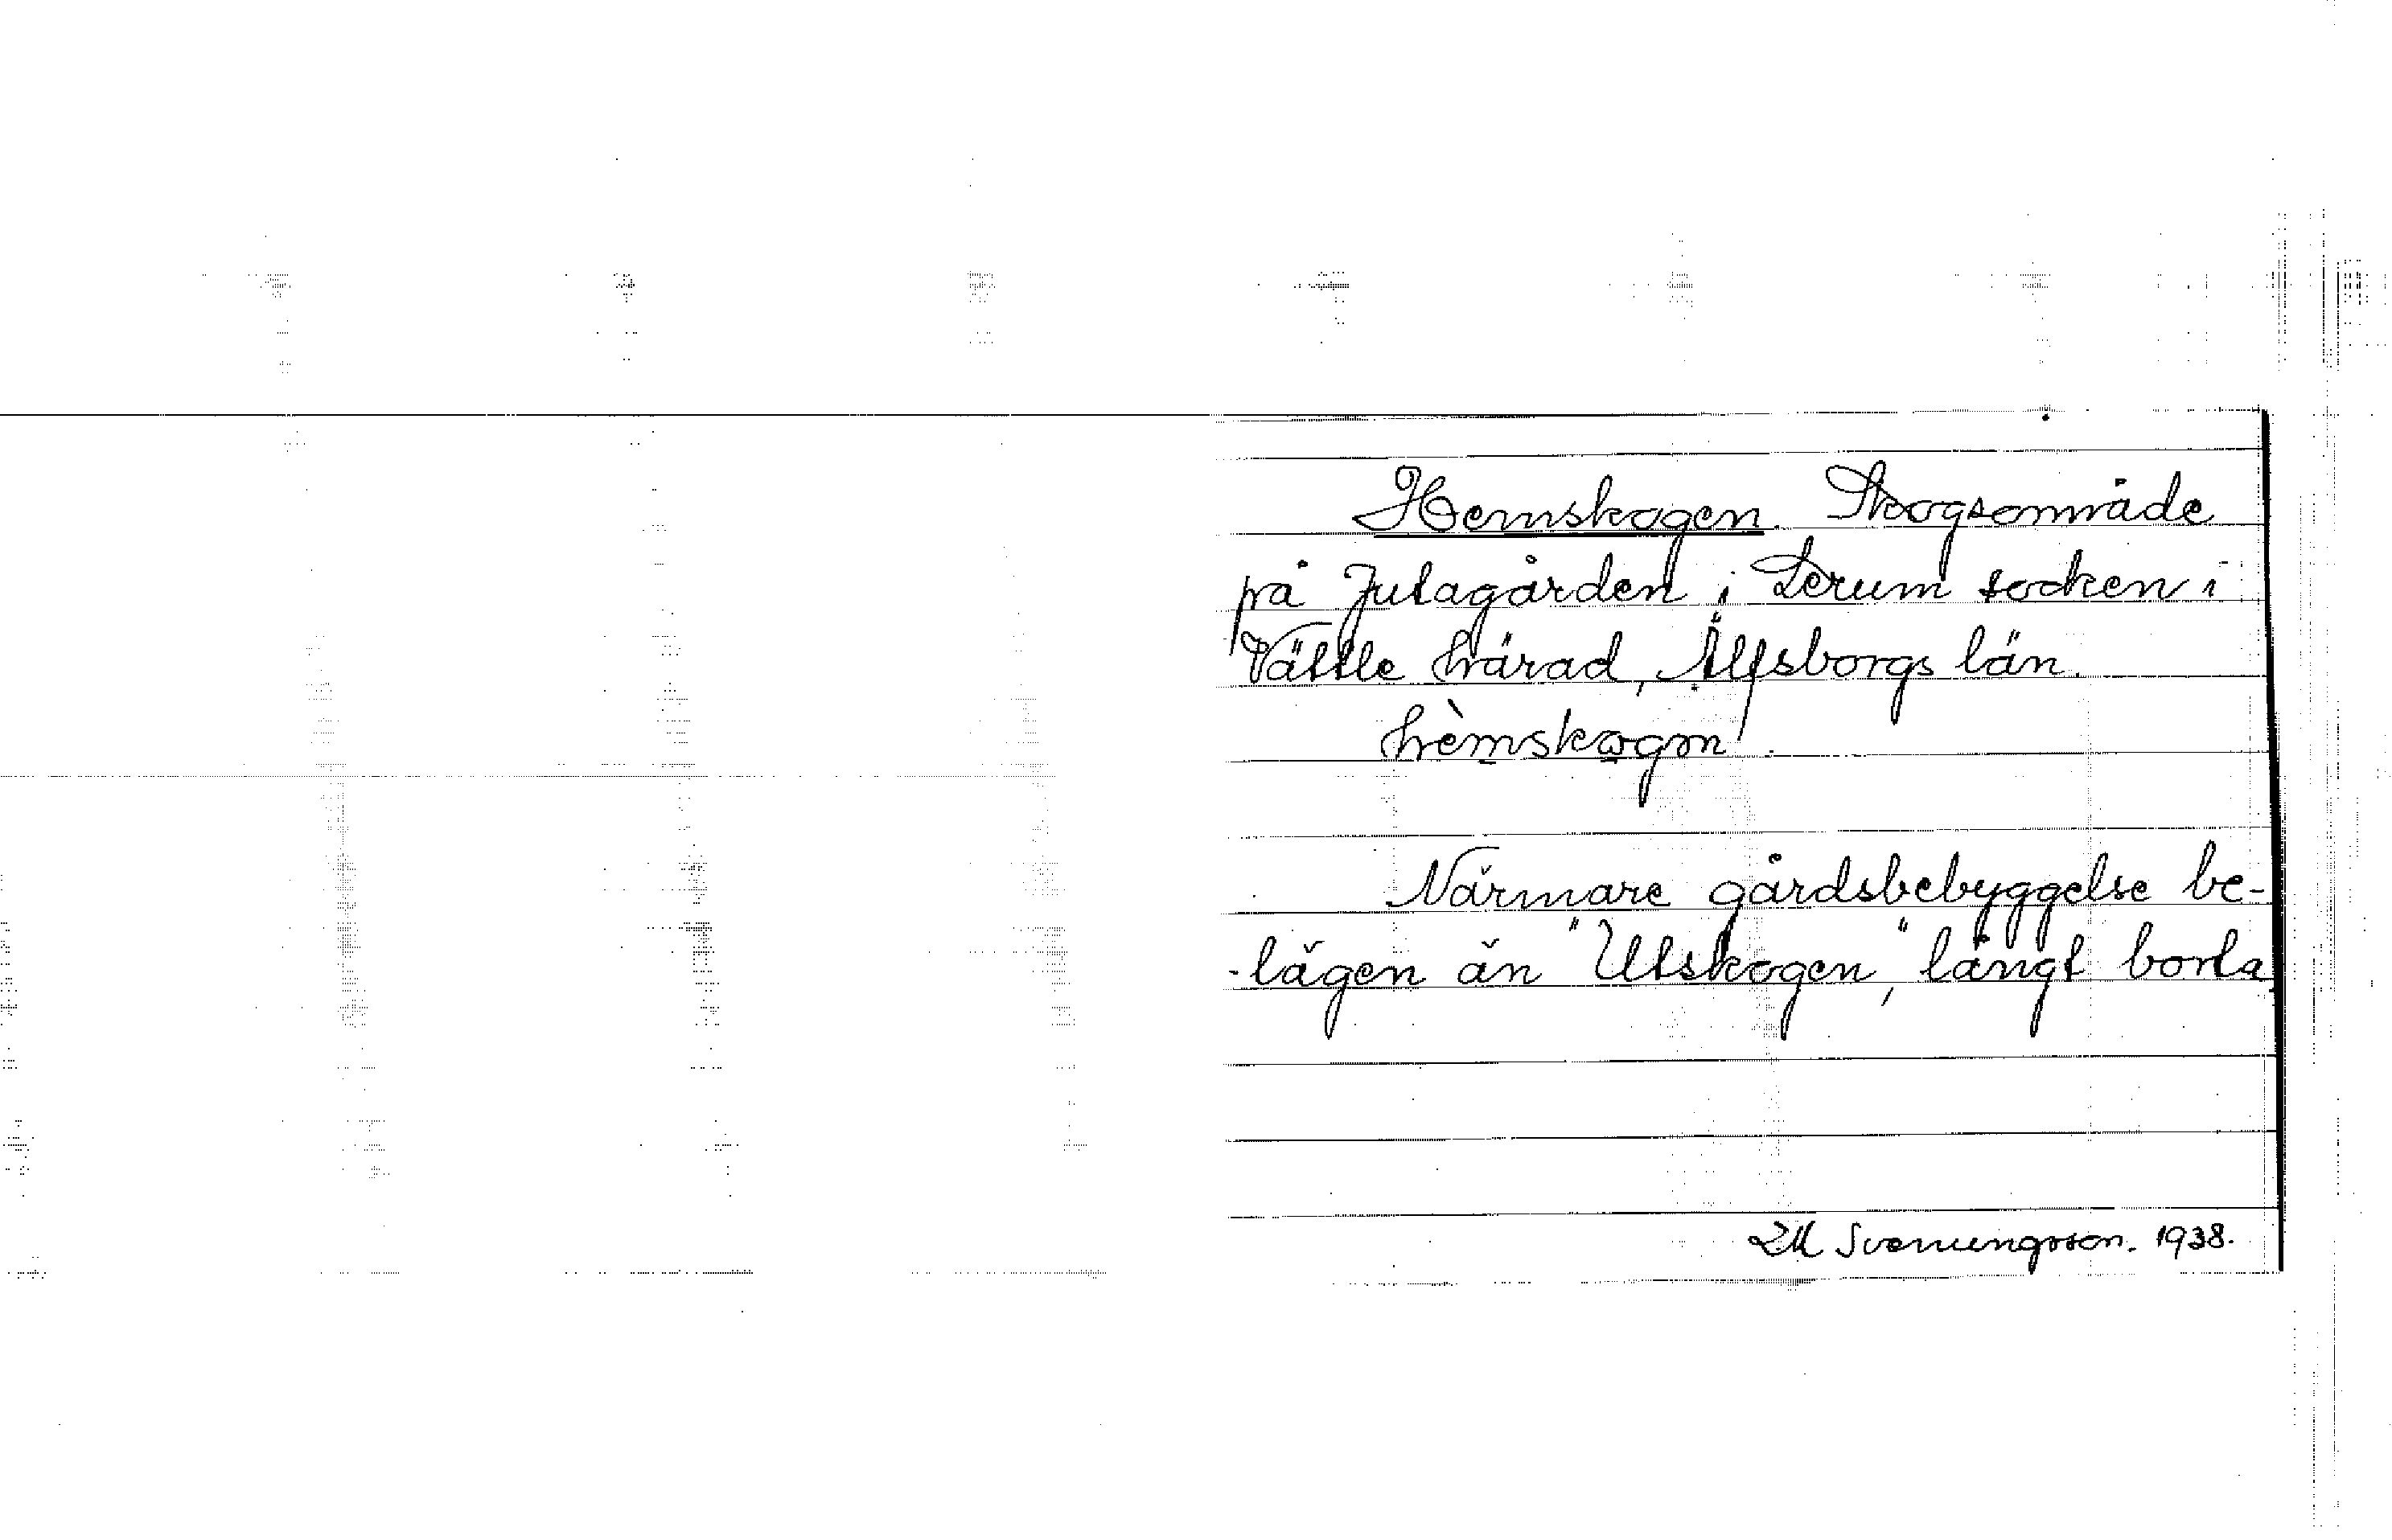 Hemskogen. Skogsområde
på Jutagården i Lerum socken i
Vättle härad, Älfsborgs län.
hèmskogən.
Närmare gårdsbebyggelse be-
-lägen än "Utskogen," långt borta.
LM Svenungsson. 1938.